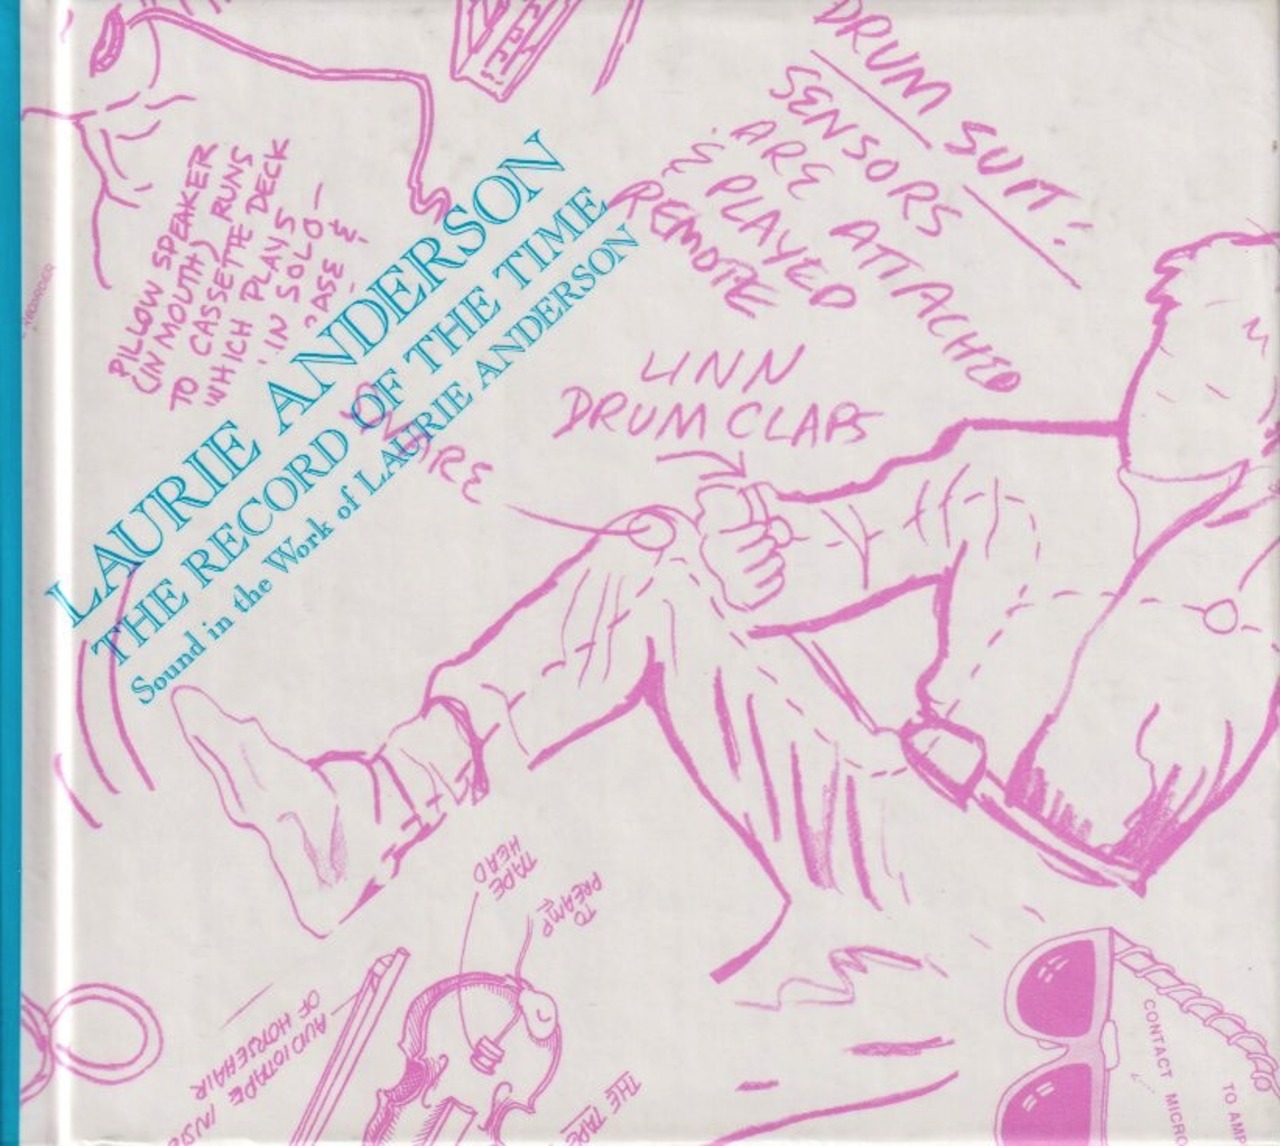 DRUM SUIT:
SENSORS
ARE ATTACHED
& PLAYED
REMOTE
PILLOW SPEAKER
(IN MOUTH) RUNS
TO CASSETTE DECK
WHICH PLAYS
IN SOLO—
LAURIE ANDERSON
THE RECORD OF THE TIME
Sound in the Work of LAURIE ANDERSON
LINN
DRUM CLAPS
SNARE
TAPE
HEAD
TO
PREAMP
AUDIOTAPE INS
OF HORSEHAIR
THE TAPE
CONTACT MICR
TO AM